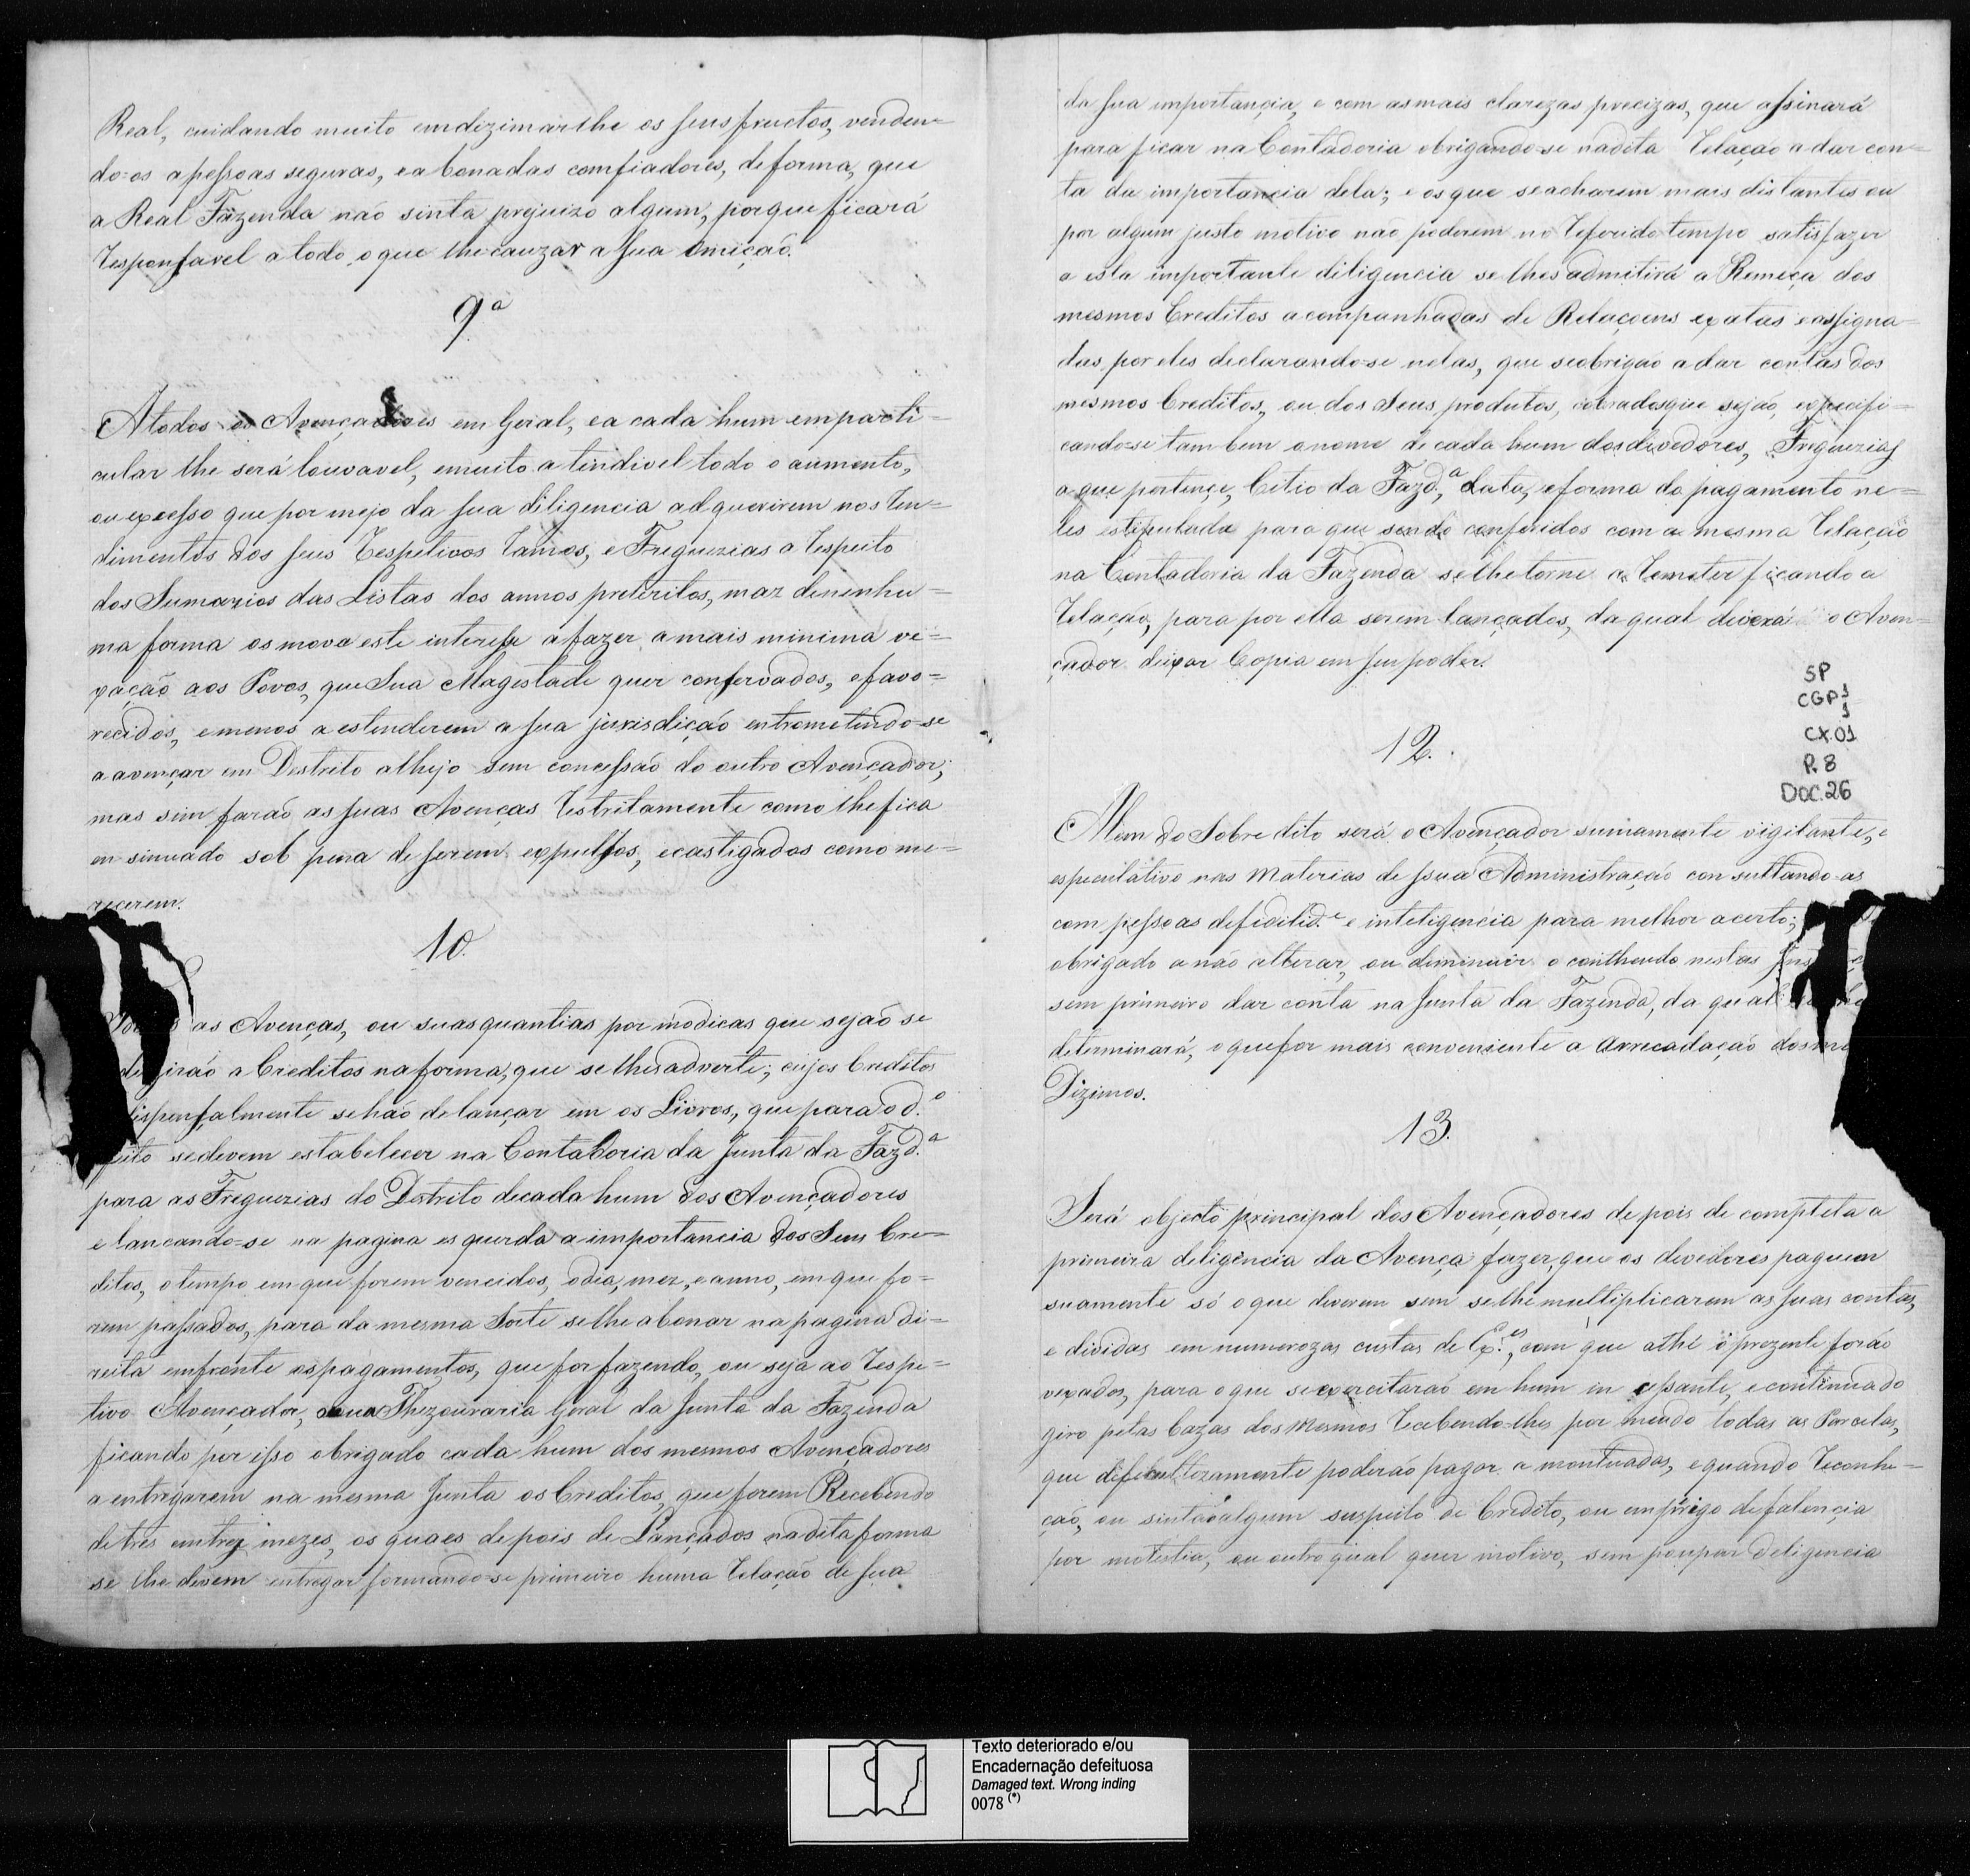 Real, cuidando muito emdizimarlhe os seus fructos, venden=
do=os apessoas seguras, eabonadas comfiadores, deforma, que
a Real Fazenda naõ sinta prejuizo algum, porque ficará
responsavel atodo oque lhe cauzar a sua omiçaõ.
9ª
Atodos os Avençadores em geral, ea cada hum emparti=
cular lhe será louvavel, emuito atendivel todo o aumento,
ou excesso que por mejo da sua diligencia adquerirem nos ren=
dimentos dos seus respetivos ramos, e Freguezias a respeito
dos Sumarios das Listas dos annos preteritos, maz denenhu=
ma forma os mova este interesse afazer amais minima ve=
xaçaõ aos Povos, que Sua Magestade quer conservados, efavo=
recidos, emenos aestenderem a sua jurisdiçaõ entrometendo=se
a avençar em Destrito alhejo sem concessaõ do outro Avençador;
mas sim faraõ as suas Avenças restritamente como lhefica
en sinuado sob pena de serem expulsos, ecastigados como me=
recerem.
10.
as Avenças, ou suas quantias por modicas que sejaõ se
a Creditos naforma, que se lhes adverte; cujos Creditos
ispensalmente sehaõ delançar em os Livros, que para o d.º
feito sedevem estabelecer na Contadoria da Junta da Fazd.ª
para as Freguezias do Destrito decada hum dos Avençadores
elancando=se na pagina esquerda a importancia dos Seus Cre=
ditos, otempo emque forem vencidos, odia, mez, eanno, emque fo=
rem passados, para da mesma Sorte selhe abonar na pagina di=
reita emfrente ospagamentos, que for fazendo, ou seja ao respe=
tivo Avençador, ou na Thezouraria Geral da Junta da Fazenda
ficando por isso obrigado cada hum dos mesmos Avençadores
a entregarem na mesma Junta os Creditos, que forem Recebendo
detres emtrez mezes, os quaes depois de Lançados nadita forma
se lhe devem entregar formando=se primeiro huma relaçaõ de sua
da sua importançia, e com asmais clarezas precizas, que assinará
para ficar na Contadoria obrigando=se nadita relaçaõ a dar con=
ta da importancia dela; e osque seacharem mais distantes ou
por algum justo motivo naõ poderem no referido tempo satisfazer
a esta importante diligencia selhes admitirá a Remeça dos
mesmos Creditos acompanhadas de Relaçoens exatas eassigna=
das por eles declarando=se nelas, que seobrigaõ adar contas dos
mesmos Creditos, ou dos Seus produtos, cobradosque sejaõ, expecifi=
cando=se tambem onome de cada hum dosdevedores, Freguezias
aque pertençe, Citio da Fazd.ª, data, eforma do pagamento ne=
les estipulada para que sendo conferidos com a mesma relaçaõ
na Contadoria da Fazenda selhetorne a remeter ficando a
relaçaõ, para por ella serem lançados, da qual deverá o Aven=
çador deixar Copia em seu poder.
SP
CGP1
1
CX.01
P.8
DOC.26
12.
Alem do Sobre dito será o Avençador sumamente vigilante, e
especulativo nas Materias de sua Administraçaõ consultando=as
com pessoas defidilid.e e inteligencia para melhor acerto;
obrigado anaõ alterar, ou diminuir o contheudo nestas
sem primeiro dar conta na Junta da Fazenda, da qual
determinará, oquefor mais conveniente a arrecadaçaõ dos
Dizimos.
13.
Será objecto principal dos Avençadores depois de completa a
primeira deligencia da Avença fazer, que os devedores paguem
suamente só oque deverem sem selhe multiplicarem as suas contas,
e dividas em numerozas custas de Ex.es, com que athé o prezente foraõ
vexados, para oque se exercitaraõ em hum incessante, econtinuado
giro pelas Cazas dos Mesmos recebendo=lhes por meudo todas as Parcelas,
que dificultozamente poderaõ pagar amontuadas, equando reconhe=
çaõ, ou sintaõ algum suspeito de Credito, ou emprigo de falencia
por molestia, ou outro qual quer motivo, sem poupar deligencia
Texto deteriorado e/ou
Encadernação defeituosa
Damaged text. Wrong inding
0078 (*)